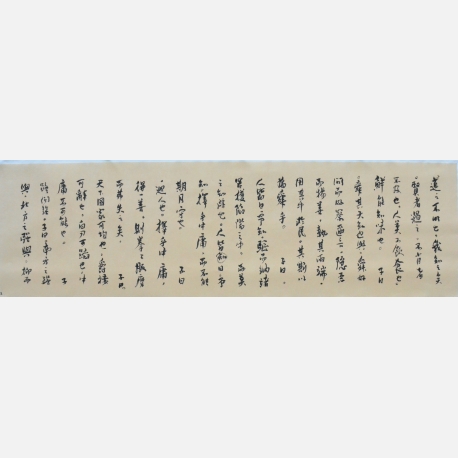 道之不明也，我知之矣
賢者過之，不肖者
不及也，人莫不飲食也，
鮮能知味也。子曰
舜其大知也與，舜好
問而好察邇言，隱惡
而揚善，執其兩端，
用其中於民，其斯以
爲舜乎。子曰
人皆曰予知，驅而納諸
罟擭陷阱之中，而莫
之知避也。人皆曰予
知，擇乎中庸，而不能
期月守也 子曰
之爲人也，擇乎中庸，
得一善，則拳拳服膺
而弗失之矣。子曰
天下國家可均也，爵祿
可辭也，白刃可蹈也，中
庸不可能也。子
路問強，子曰南方之強
與，北方之強與，抑而